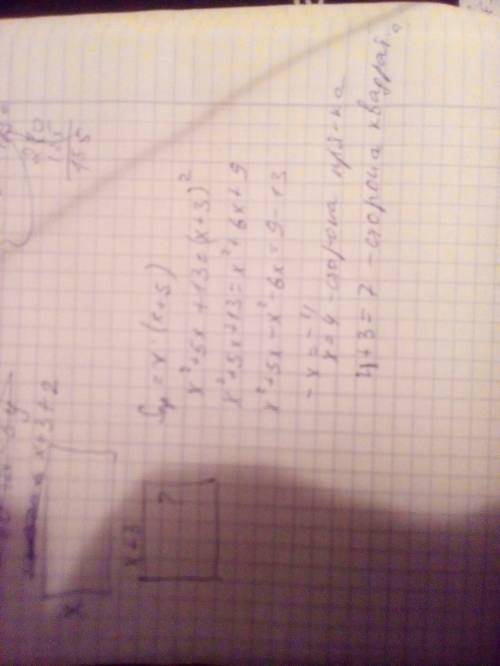 x+3+2
x
x+3
?
Sпр = x · (x+5)
x²+5x+13=(x+3)²
x²+5x+13=x²+6x+9
x²+5x-x²-6x=9-13
-x=-4
x=4 - сторона пр-ка
4+3=7 - сторона квадрата
155